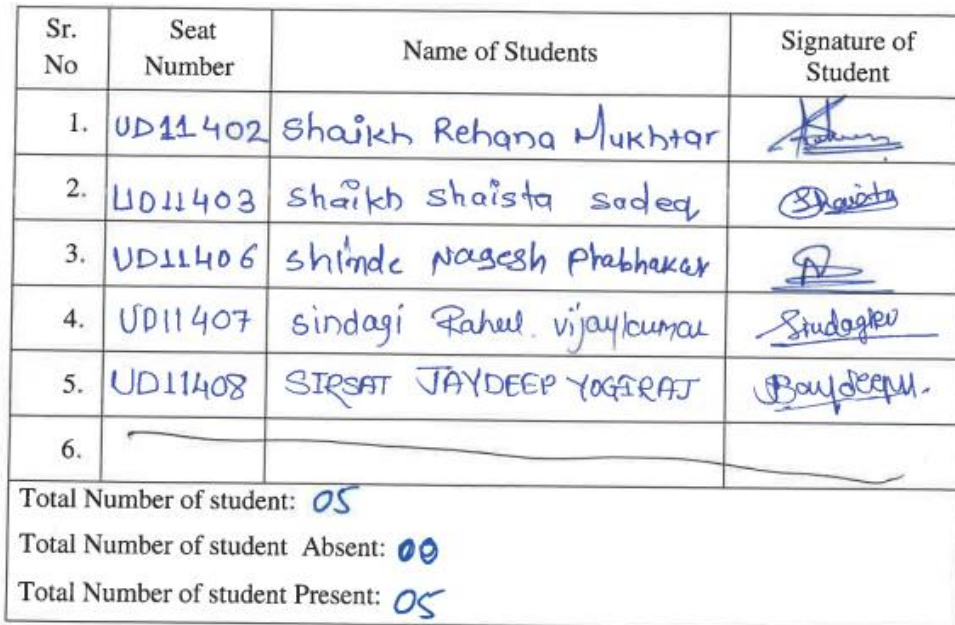 Sr. No Seat Number Name of Students Signature of Student
1. UD11402 Shaikh Rehana Mukhtar
2. UD11403 Shaikh Shaista sadeq Shaista
3. UD11406 Shinde Nagesh Prabhakar
4. UD11407 Sindagi Rahul. vijaykumar
5. UD11408 SIRSAT JAYDEEP YOGIRAJ
6.
Total Number of student: 05
Total Number of student Absent: 00
Total Number of student Present: 05